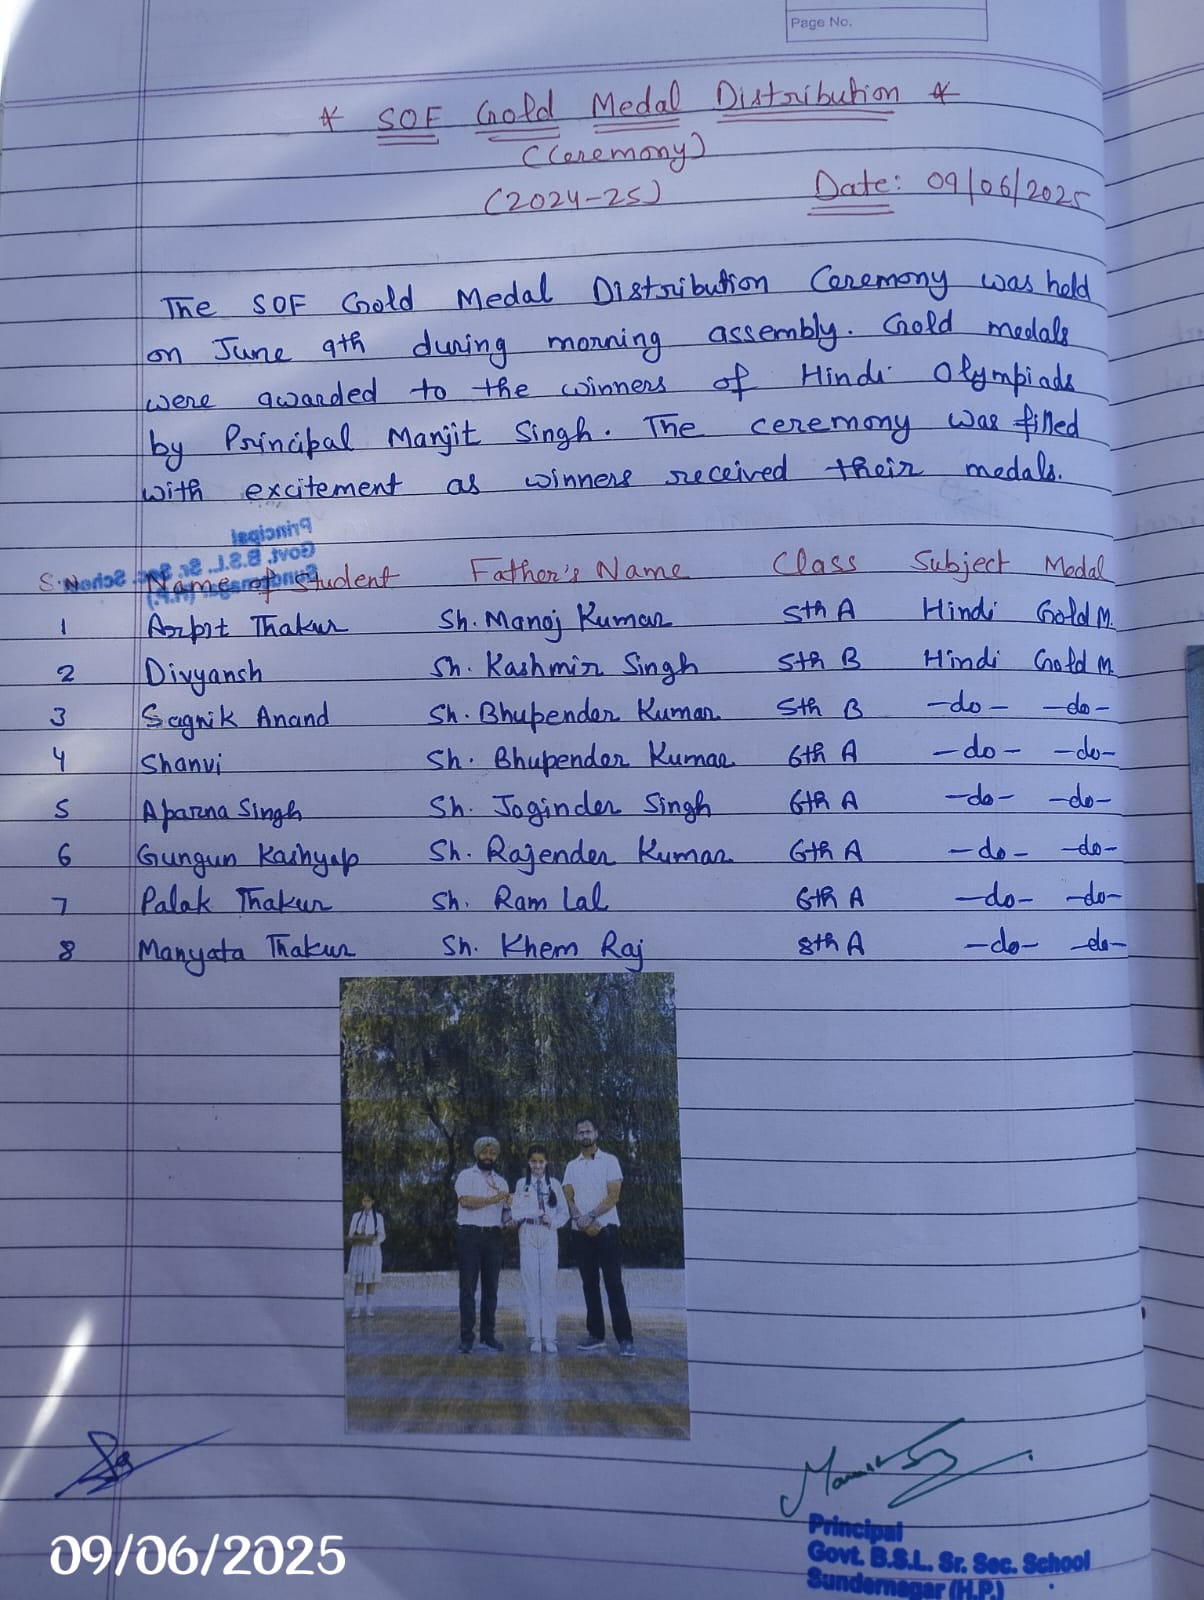 Page No.
* SOF Gold Medal Distribution *
(Ceremony)
(2024-25) Date: 09/06/2025
The SOF Gold Medal Distribution Ceremony was held
on June 9th during morning assembly. Gold medals
were awarded to the winners of Hindi Olympiads
by Principal Manjit Singh. The ceremony was filled
with excitement as winners received their medals.
Principal
Govt. B.S.L. Sr. Sec. School
Sundernagar (H.P.)
S.No Name of Student Father's Name Class Subject Medal
1 Arpit Thakur Sh. Manoj Kumar 5th A Hindi Gold M.
2 Divyansh Sh. Kashmir Singh 5th B Hindi Gold M.
3 Sagnik Anand Sh. Bhupender Kumar 5th B -do- -do-
4 Shanvi Sh. Bhupender Kumar 6th A -do- -do-
5 Aparna Singh Sh. Joginder Singh 6th A -do- -do-
6 Gungun Kashyap Sh. Rajender Kumar 6th A -do- -do-
7 Palak Thakur Sh. Ram Lal 6th A -do- -do-
8 Manyata Thakur Sh. Khem Raj 8th A -do- -do-
Principal
Govt. B.S.L. Sr. Sec. School
Sundernagar (H.P.)
09/06/2025